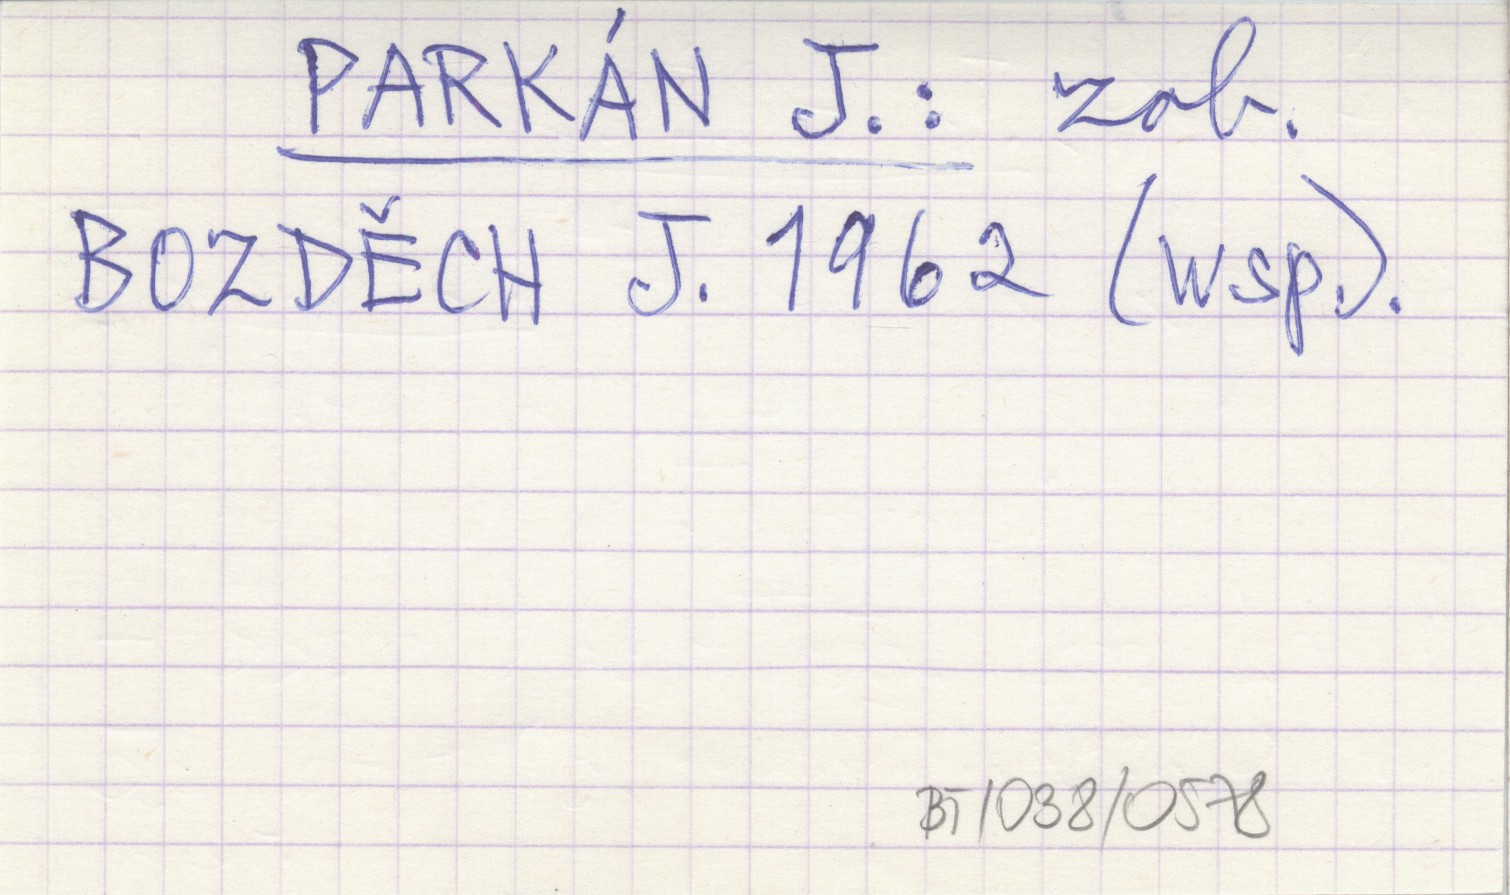 PARKÁN J.: zob.
BOZDĚCH J. 1962 (wsp.).
BT/038/0578